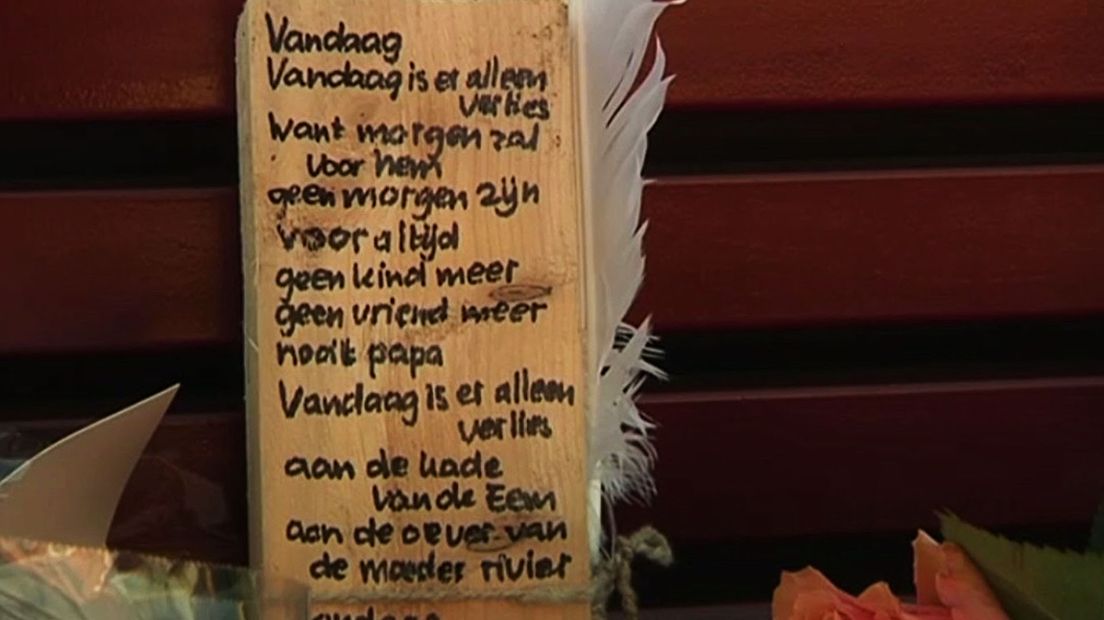 Vandaag
Vandaag is er alleen
verlies
Want morgen zal
voor hem
geen morgen zijn
voor altijd
geen kind meer
geen vriend meer
nooit papa
Vandaag is er alleen
verlies
aan de kade
van de Eem
aan de oever van
de moeder rivier